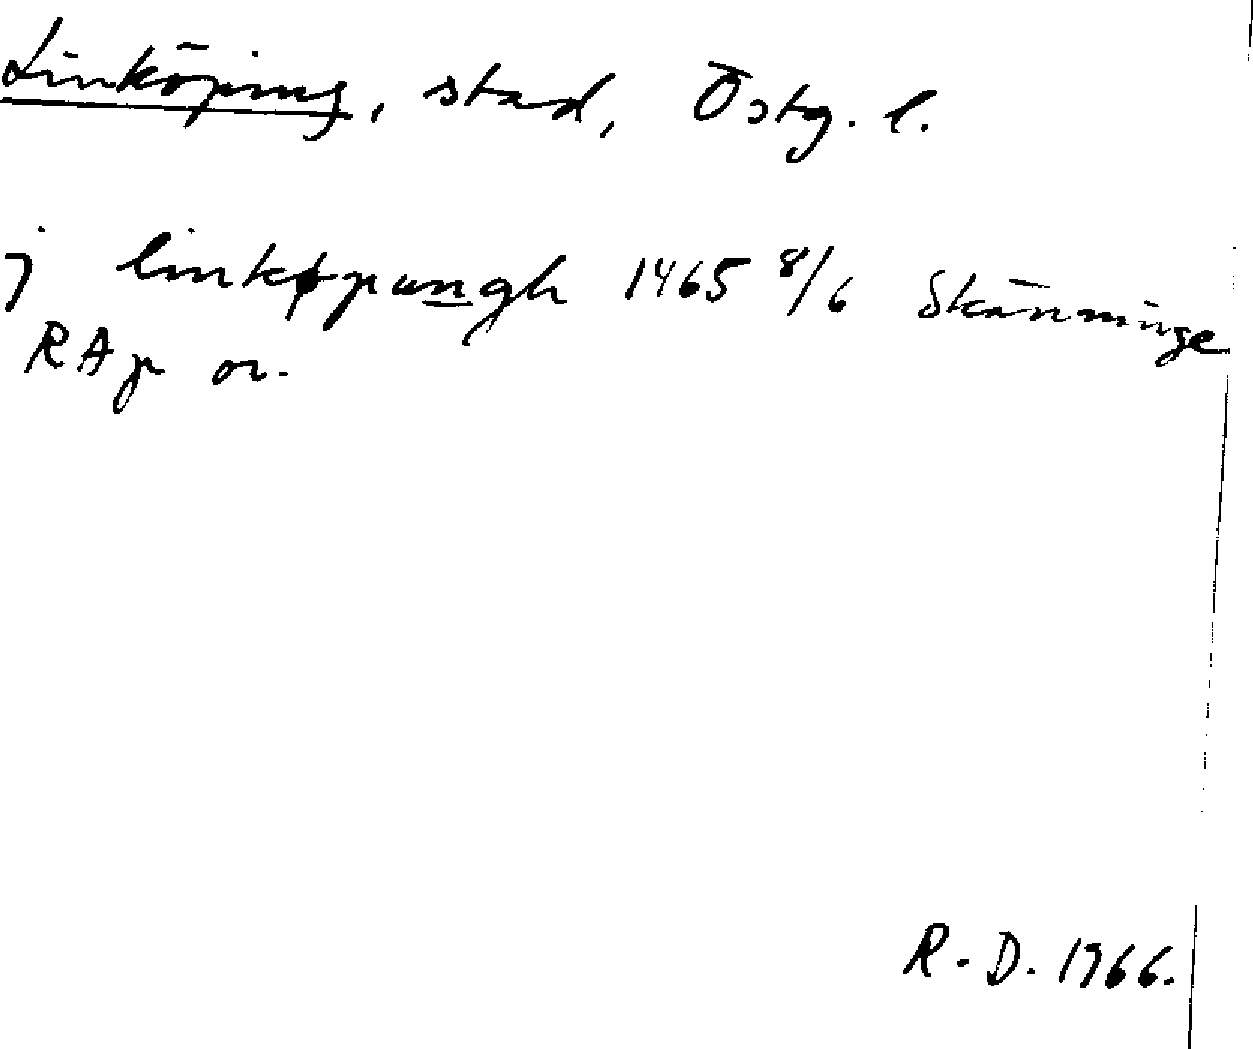 Linköping, stad, Östg. l.
j linkøpungh 1465 8/6 Skänninge
RAp or.
R.D. 1966.